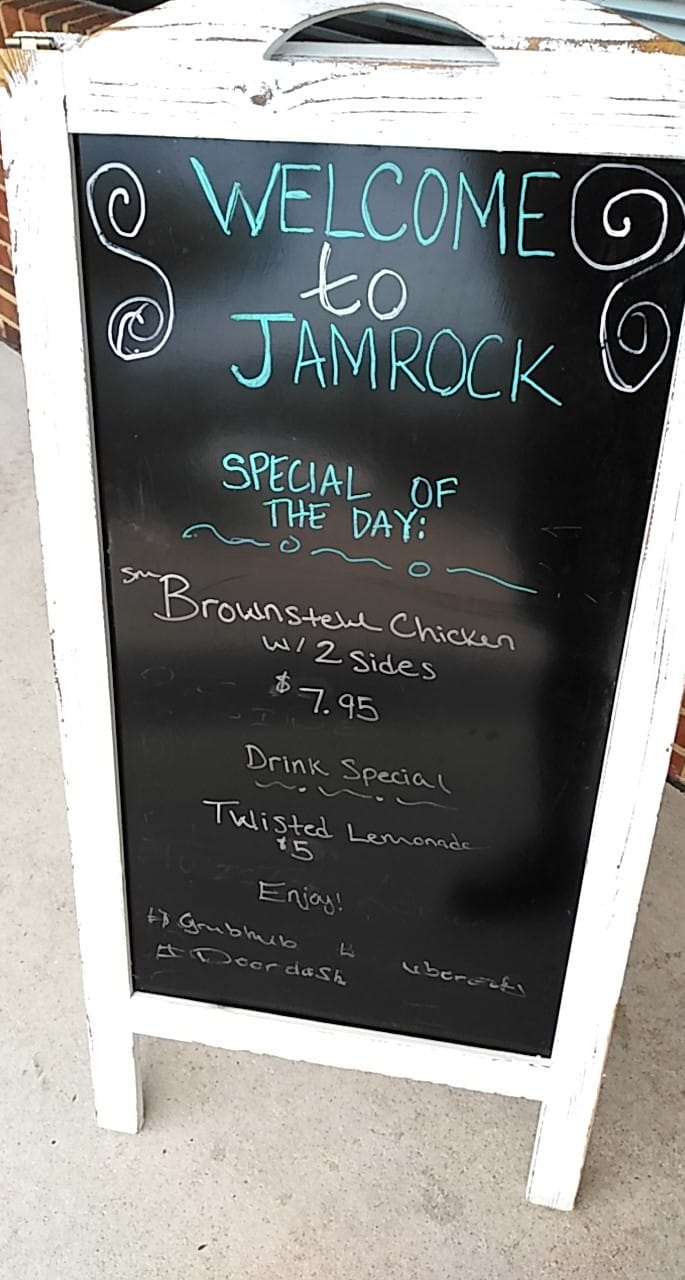 WELCOME
to
JAMROCK
SPECIAL OF
THE DAY:
Sm
Brownstew Chicken
w/ 2 Sides
$7.95
Drink Special
Twisted Lemonade
$5
Enjoy!
# Grubhub # ubereats
# Doordash